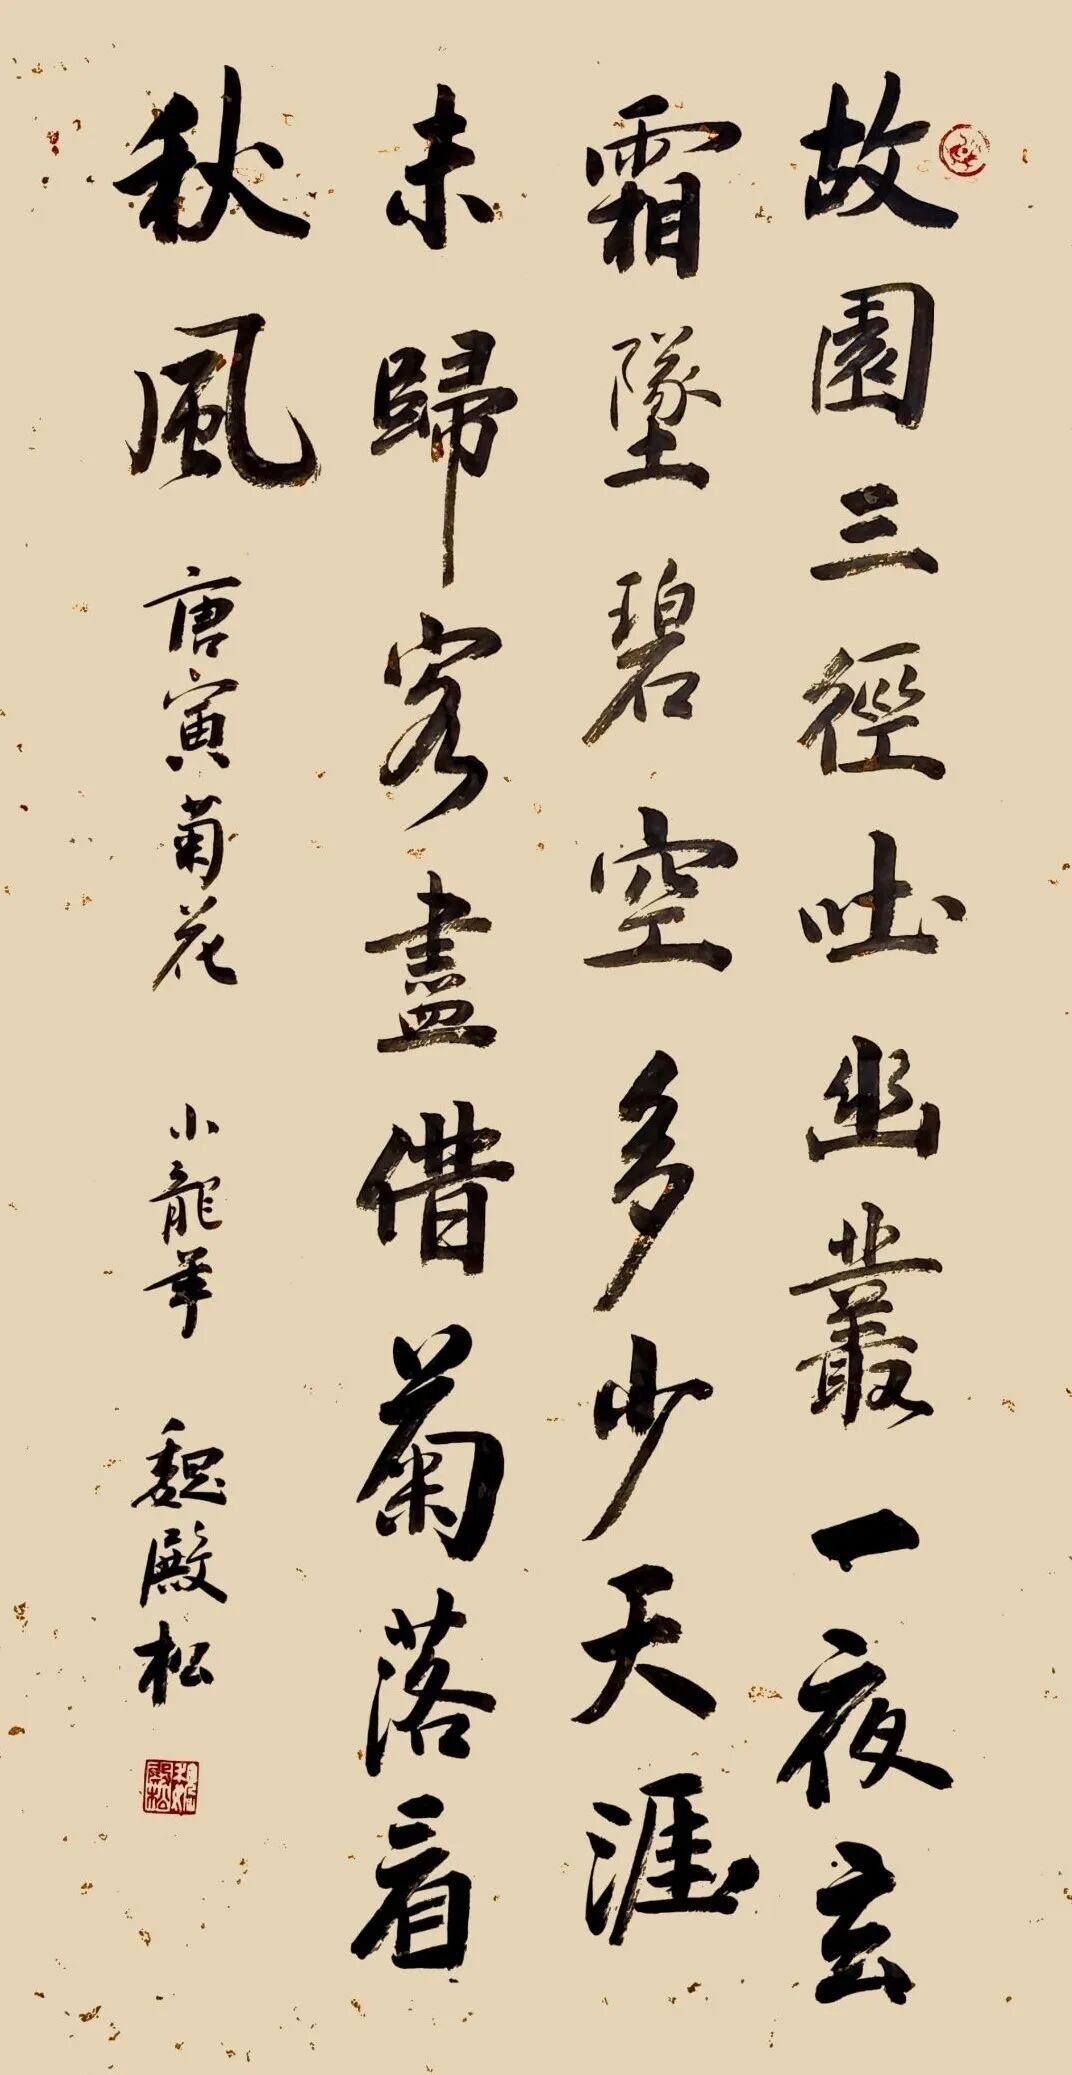 故園三徑吐幽叢一夜玄
霜墜碧空多少天涯
未歸客盡借菊落看
秋風 唐寅菊花 小龍年 魏殿松